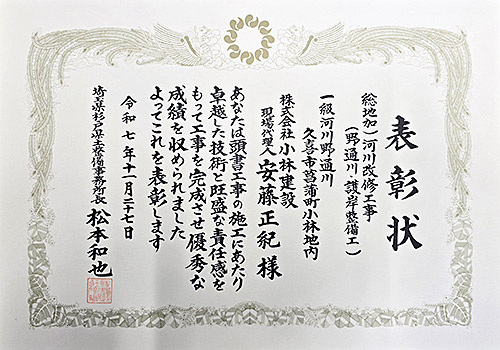 表彰状
総地加)河川改修工事
(野通川・護岸整備工)
一級河川野通川
久喜市菖蒲町小林地内
株式会社小林建設
現場代理人 安藤正紀 様
あなたは頭書工事の施工にあたり
卓越した技術と旺盛な責任感を
もって工事を完成させ優秀な
成績を収められました
よってこれを表彰します
令和七年十一月二十七日
埼玉県杉戸県土整備事務所長 松本和也